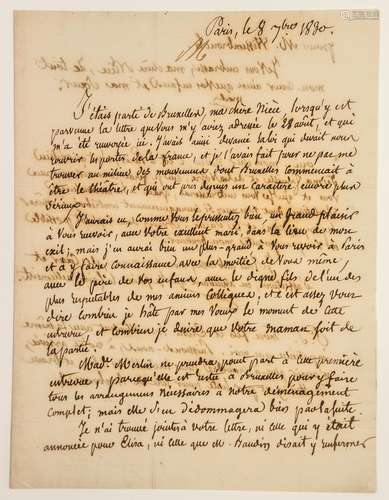 Paris, le 8 7bre 1830.
M
J'étais parti de Bruxelles, ma chère Nièce lorsqu'y est
parvenue la lettre que vous m'y avez adressée le 28 août, et qui
m'a été renvoyée ici. J'avais ainsi devancé la loi qui devait nous
rouvrir les portes de la france, et je l'avais fait pour ne pas me
trouver au milieu des mouvemens dont Bruxelles commencait à
être le théâtre, et qui ont pris depuis un Caractère encore plus
sérieux.
J'aurais eu, comme vous le présentez bien, un grand plaisir
à Vous revoir, avec Votre excellent mari, dans le lieu de mon
exil; mais j'en aurai bien un plus grand à Vous revoir à Paris
et à y faire connaissance avec la moitié de Vous même,
avec le père de vos enfans, avec le digne fils de l'un des
plus respectables de mes anciens Collègues, et c'est assez Vous
dire combien je hâte par mes Vœux le moment de cette
entrevue, et combien je desire que Votre maman soit de
la partie.
Made. Merlin ne prendra point part à cette première
entrevue, parcequ'elle est restée à Bruxelles pour y faire
tous les arrangemens nécessaires à notre déménagement
complet; mais elle s'en dédommagera bien par la suite.
Je n'ai trouvé jointes à Votre lettre, ni celle qui y était
annoncée pour Elisa, ni celle que M. Baudin disait y renfermer